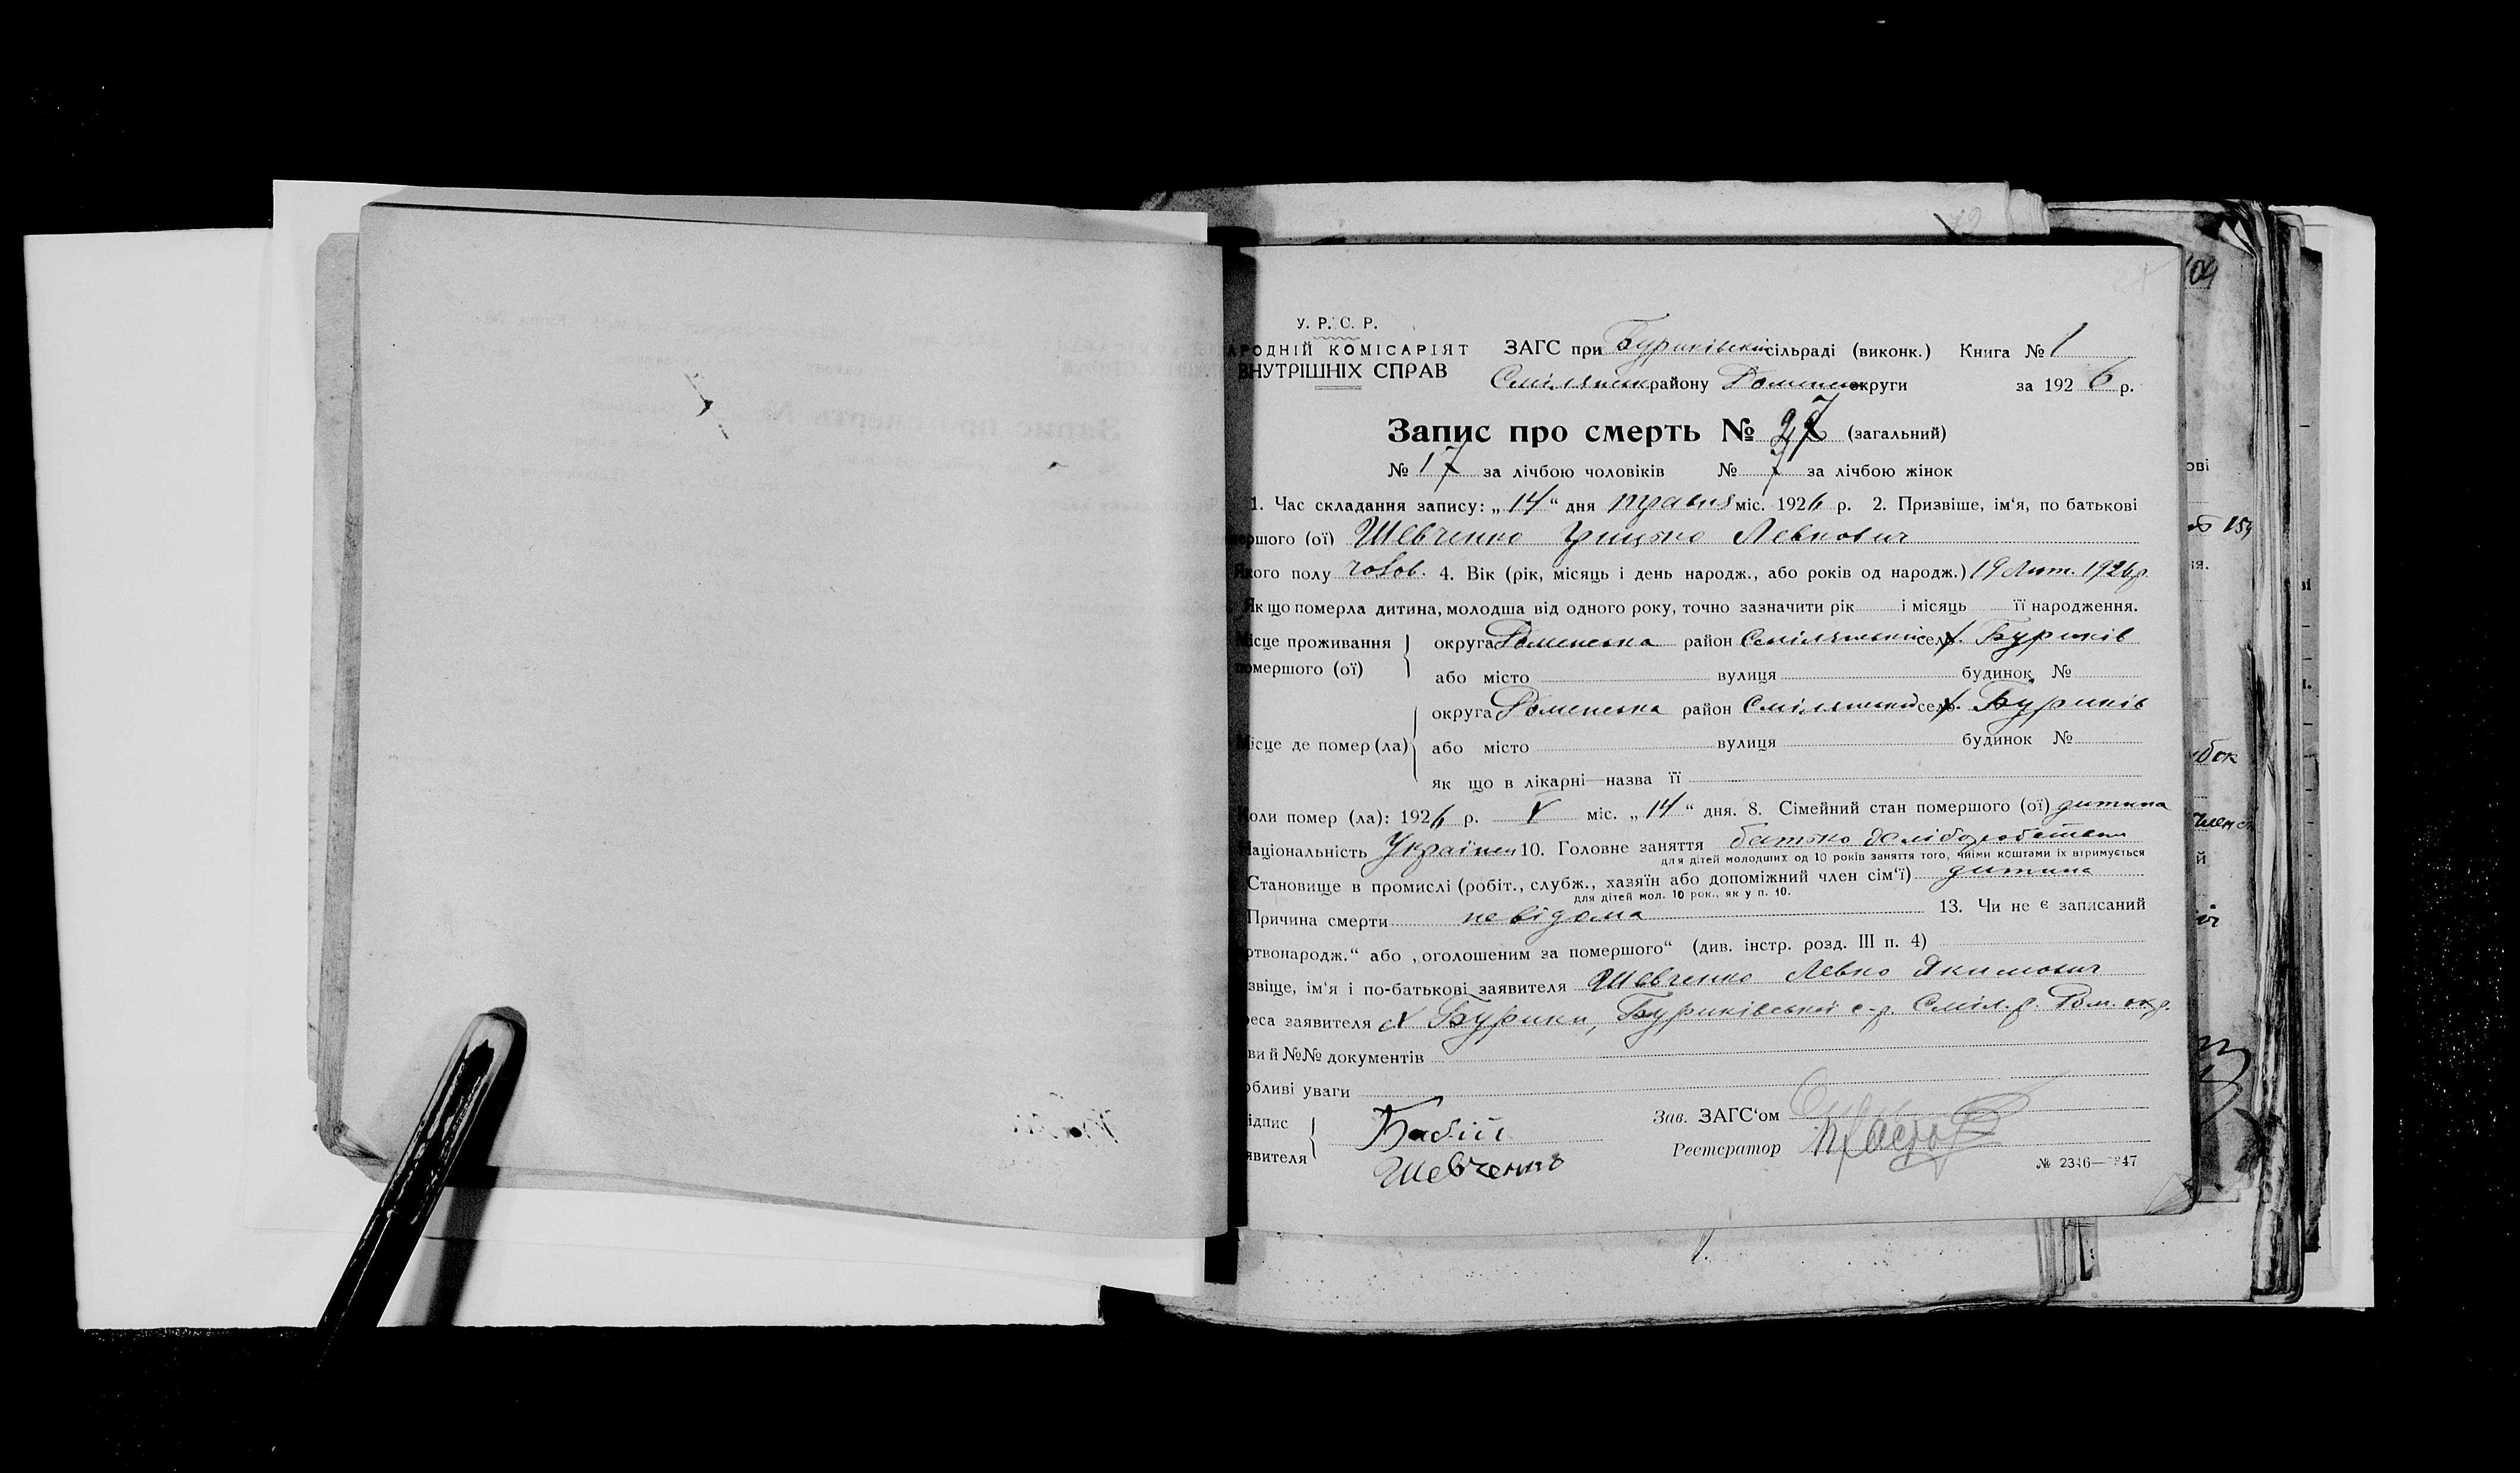 У. Р. С. Р.
АРОДНІЙ КОМІСАРІЯТ
ВНУТРІШНІХ СПРАВ
ЗАГС при Буриківській сільраді (виконк.) Книга № 1
Смілянськ району Роменськ округи за 1926 р.
Запис про смерть № 27 (загальний)
№ 17 за лічбою чоловіків № за лічбою жінок
1. Час складання запису: „14“ дня травня міс. 1926 р. 2. Призвіше, ім‘я, по батькові
ершого (ої) Шевченко Грицько Левкович
кого полу чолов. 4. Вік (рік, місяць і день народж., або років од народж.) 19 Лют. 1926 р.
Як що померла дитина, молодша від одного року, точно зазначити рік і місяць її народження.
ісце проживання
помершого (ої)
округа Роменська район Смілянський село х. Буриків
або місто вулиця будинок №
ісце де помер (ла)
округа Роменська район Смілянський село х. Буриків
або місто вулиця будинок №
як що в лікарні—назва її
оли помер (ла): 1926 р. V міс. „14“ дня. 8. Сімейний стан помершого (ої) дитина
аціональність Українец 10. Головне заняття батько
для дітей молодших од 10 років заняття того, чиїми коштами їх втримується
Становище в промислі (робіт., службж., хазяїн або допоміжний член сім‘ї) дитина
для дітей мол. 10 рок., як у п. 10.
Причина смерти невідома 13. Чи не є записаний
ртвонародж.“ або „оголошеним за помершого“ (див. інстр. розд. III п. 4)
звіще, ім‘я і по-батькові заявителя Шевченко Левко Якимович
еса заявителя х Бурики, Буриківської с-р. Сміл. р. Ром. окр.
ви й №№ документів
обливі уваги
ідпис
явителя
Бабій
Шевченко
Зав. ЗАГС‘ом
Реєстратор